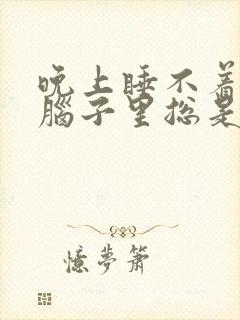 晚上睡不着
腦子里总是
憶夢簫